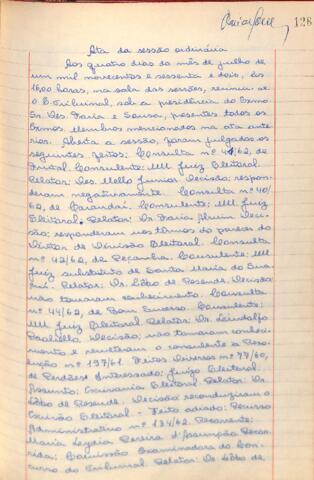 128
Ata da sessão ordinária
Aos quatro dias do mês de julho de
um mil novecentos e sessenta e dois, às
16,00 horas, na sala das sessões, reuniu-se
o E. Tribunal, sob a presidência do Exmo
Sr. Des. Faria e Sousa, presentes todos os
Exmos. Membros mencionados na ata ante
rior. Aberta a sessão, foram julgados os
seguintes feitos: Consulta nº 41/62, de
Consulente: MM. Juiz Eleitoral.
Relator: Des. Mello Junior. Decisão: respon-
deram negativamente. Consulta nº 40/
62, de Carandaí. Consulente: MM. Juiz
Eleitoral. Relator: Dr. Faria Alvim. Deci-
são: responderam nos termos do parecer do
Diretor de Divisão Eleitoral. Consulta
nº 42/62, de Peçanha. Consulente: MM.
Juiz substituto de Santa Maria do Sua-
Relator: Dr. Lôbo de Resende. Decisão:
não tomaram conhecimento. Consulta
nº 44/62, de Bom Sucesso. Consulente:
MM. Juiz Eleitoral. Relator: Dr. Lindolfo
Paoliello. Decisão: não tomaram conheci-
mento e remeteram o consulente à Reso-
lução nº 197/61. Feitos Diversos nº 77/60,
de Perdões. Interessado: Juízo Eleitoral.
Assunto: Escrivania Eleitoral. Relator: Dr.
Lôbo de Resende. Decisão: reconduziram o
Escrivão Eleitoral. - Feito adiado: Recurso
Administrativo nº 134/62. Recorrente:
Maria Lygia Pereira d'Assumpção. Recor-
rida: Comissão Examinadora do Con-
curso do Tribunal. Relator: Dr. Lôbo de